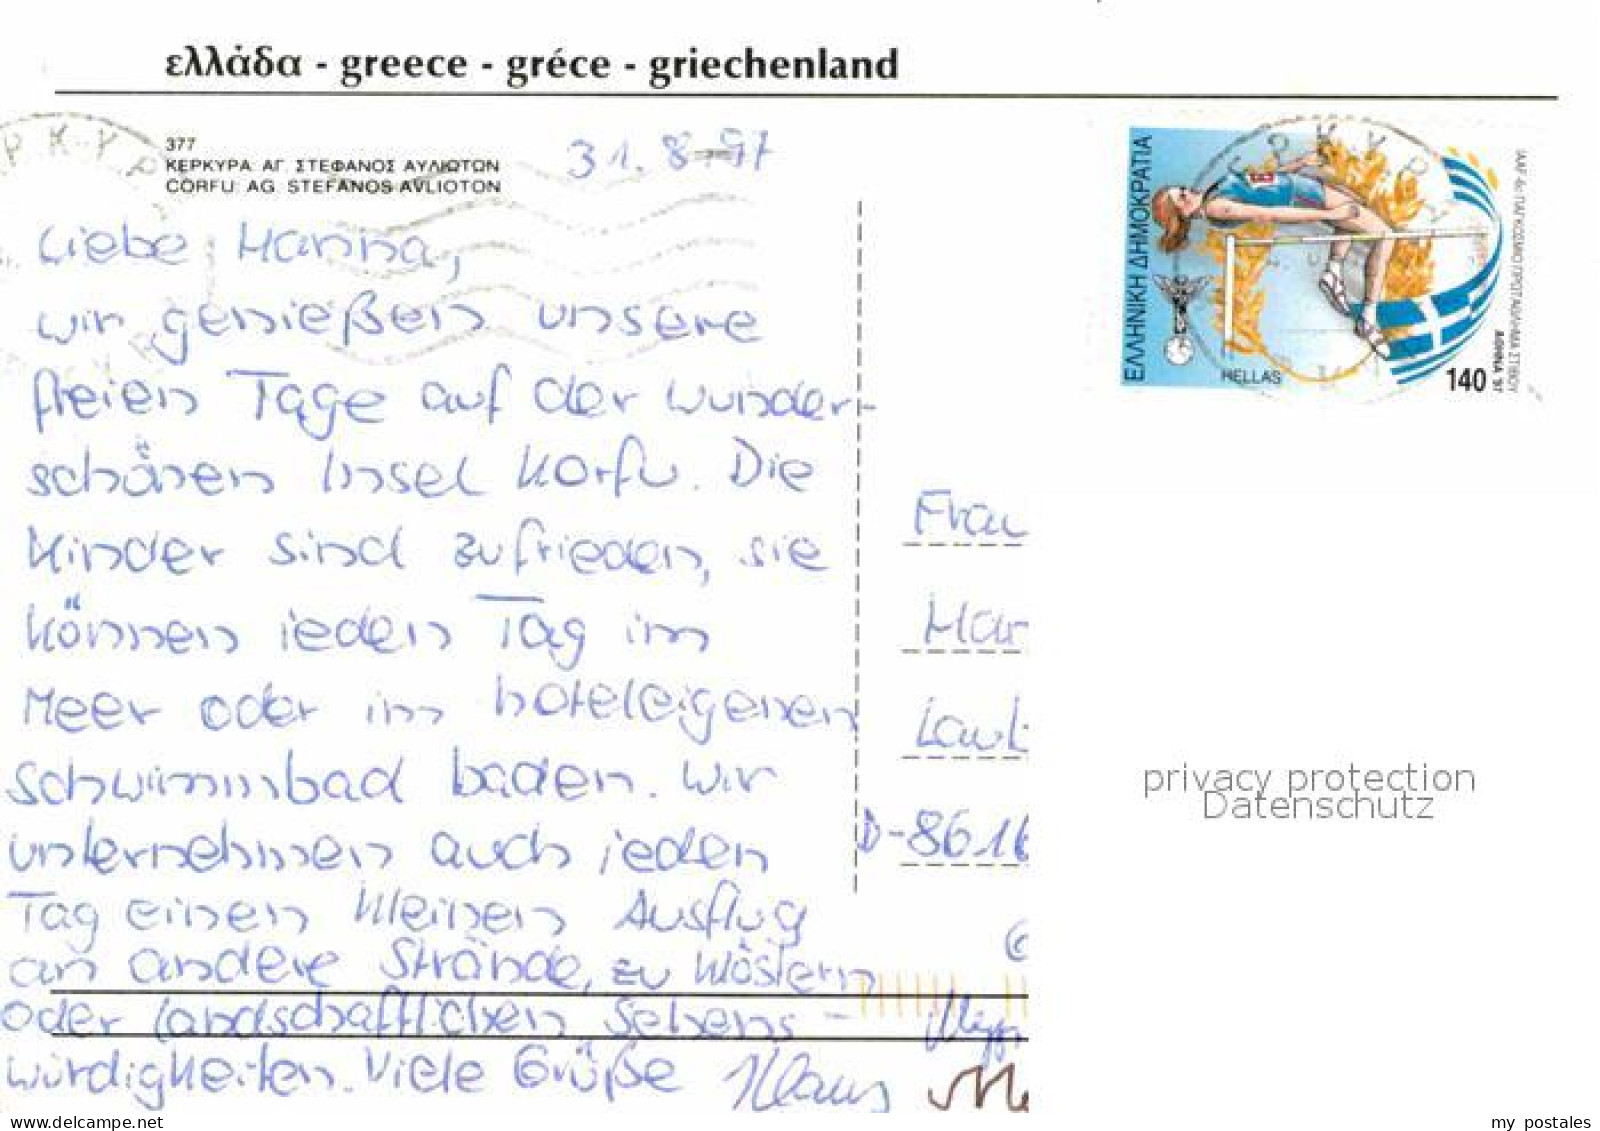 ελλάδα - greece - gréce - griechenland
377
ΚΕΡΚΥΡΑ ΑΓ. ΣΤΕΦΑΝΟΣ ΑΥΛΙΩΤΩΝ
CORFU AG. STEFANOS AVLIOTON
31. 8. 97
Liebe Hanna,
wir genießen unsere
freien Tage auf der wunder-
schönen Insel Korfu. Die
Kinder sind zufrieden, sie
können jeden Tag im
Meer oder im hoteleigenen
Schwimmbad baden. Wir
unternehmen auch jeden
Tag einen kleinen Ausflug
an andere Strände, zu Klöstern
oder landschaftlichen Sehens-
würdigkeiten. Viele Grüße Klaus
ΕΛΛΗΝΙΚΗ ΔΗΜΟΚΡΑΤΙΑ
HELLAS
140
ΑΘΗΝΑ '97
Frau
Har
Laub
D-8616
privacy protection
Datenschutz
my postales